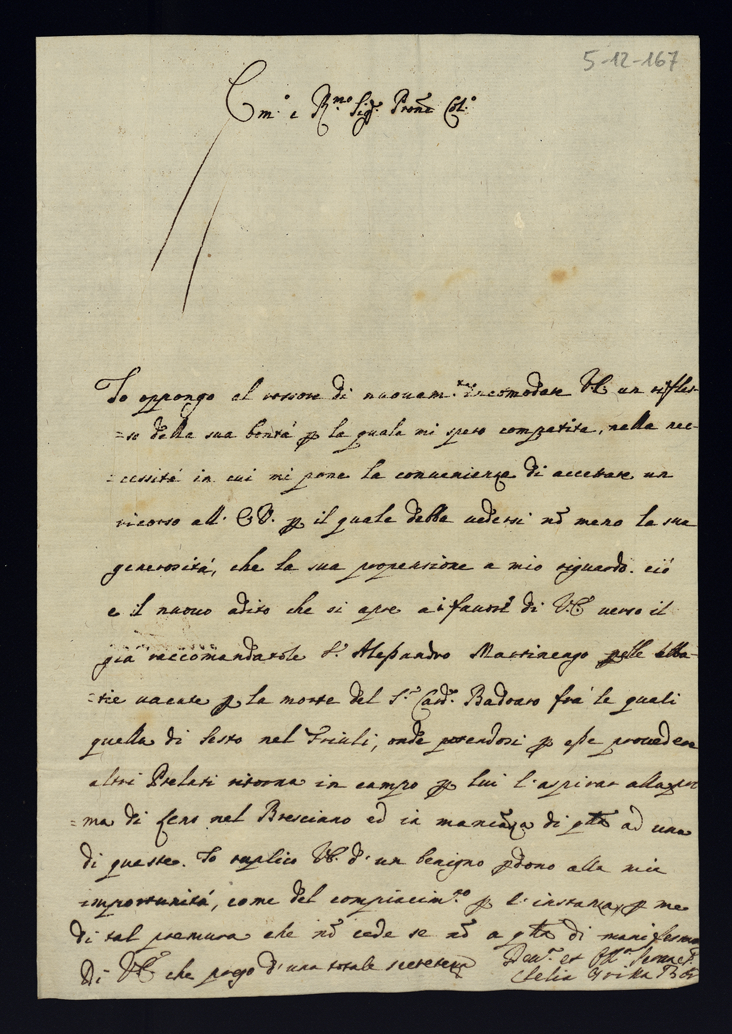 5-12-167
Em.º e R.mo Sig.r Pron.e Col.º
Io oppongo al rossore di nuovam.te incomodare VE. un rifles-
=so della sua bontà p la quale mi spero compatita, nella nec-
=cessità in cui mi pone la convenienza di accettare un
ricorso all' p il quale debba vedersi nõ meno la sua
generosità, che la sua propensione a mio riguardo. ciò
e il nuovo adito che si apre a i favori di VE verso il
già raccomandatole S.r Alessandro Martinengo nelle abba-
=tie vacate p la morte del S.r Card.e Badoaro frà le quali
quella di Sesto nel Friuli, onde potendosi p esse provedere
altri Prelati ritorna in campo p lui l'aspirar alla pri
=ma di Leno nel Bresciano ed in mancãza di q.ta ad una
di queste. Io suplico VE. d'un benigno pdono alla mia
importunità, come del compiacim.to p l'instanza, p me
di tal premura che nõ cede se nõ a q.ta di manifestarmi
Di VE che prego d'una totale secretezza Dev.a et Obl.a Serva
Clelia